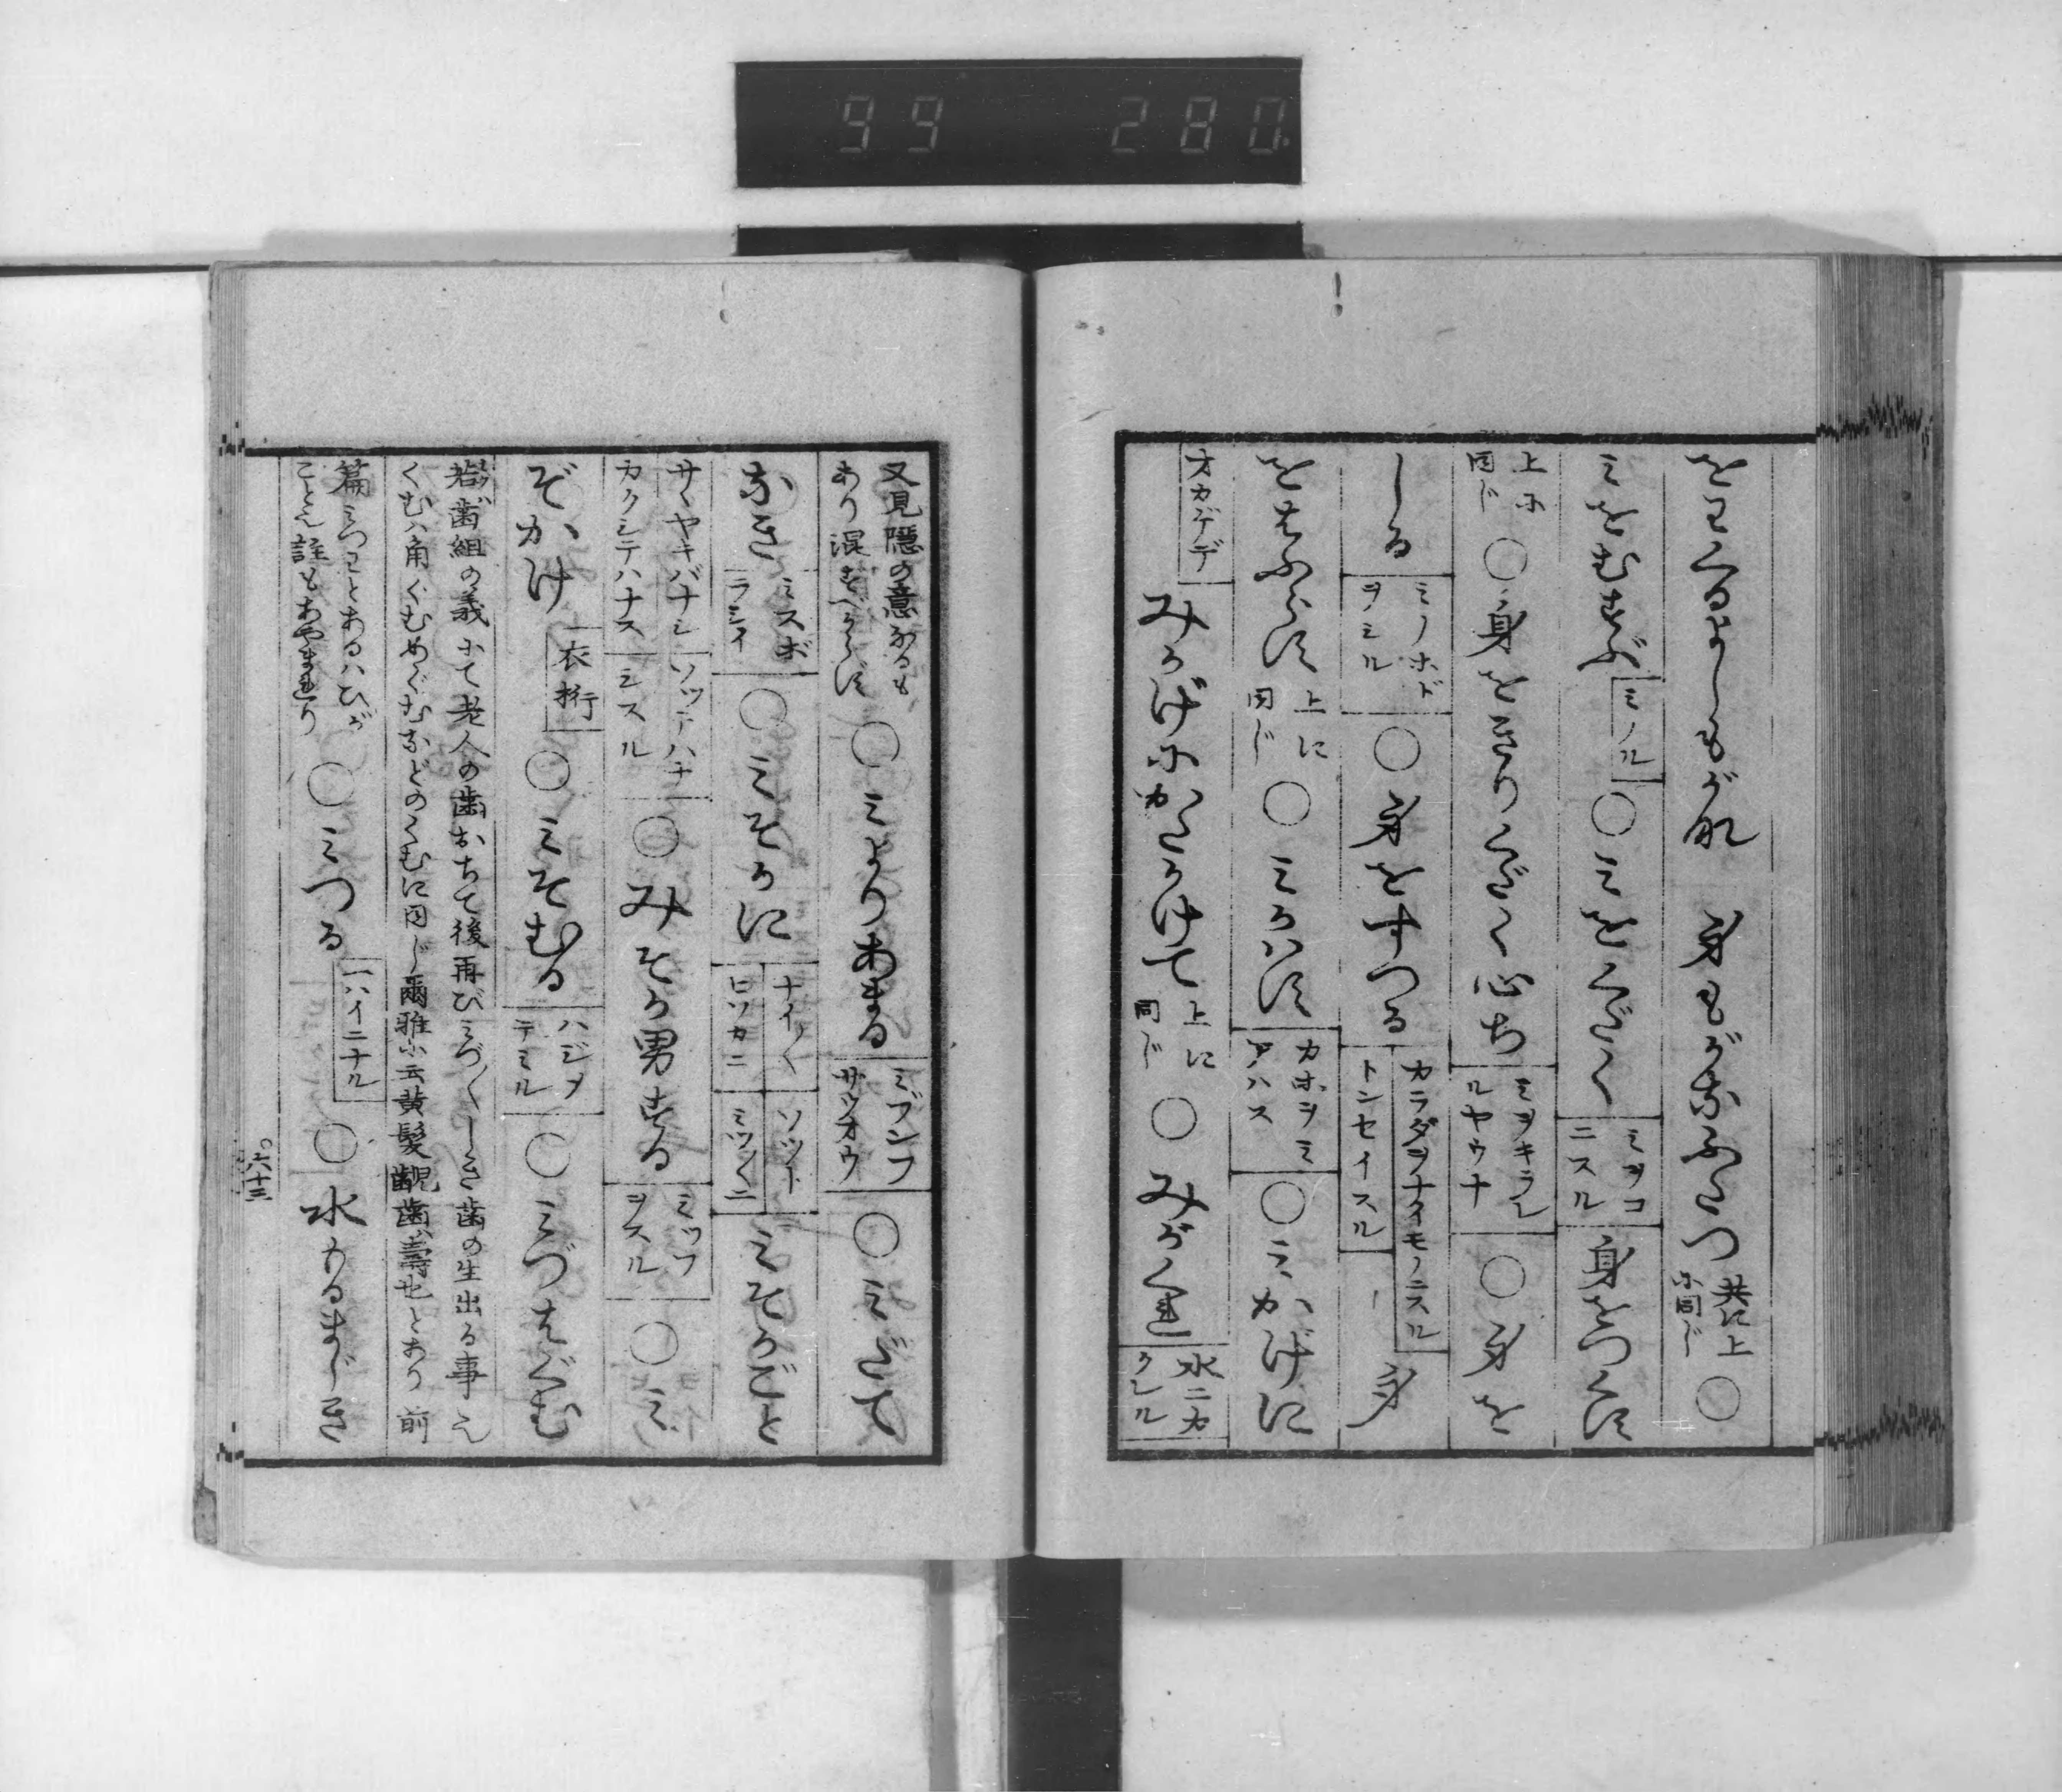 99 280
をわくるよしもがな 身もがなふたつ 共に上に同じ ○
みをむすぶ ミノル ○ みをくだく ミヲコニスル 身をつくす
上に同じ ○ 身をきりくだく心ち ミヲキラルヽヤウナ ○ 身を
しる ミノホドヲシル ○ 身をすつる カラダヲナイモノニスル トンセイスル 身
をはふらす 上に同じ ○ みかはす カホヲミアハス ○ みかげに
オカゲデ みかげにかくかけて 上に同じ ○ みがくれ 水ニカクルヽ
又見隠の意なるもあり混すべからず ○ みよりあまる ミブンフサウオウ ○ みだて
なき ミスボラシイ ○ みそかに ナイ〱 ヒソカニ ソツト ミツ〱ニ みそかごと
サヽヤキバナシ カクシテハナス ソツテハナシスル ○ みそか男する ミツフヲスル ○ み
ぞかけ 衣桁 ○ みそむる ハジメテミル ○ みづはぐむ
若歯組の義にて老人の歯おちて後再びみづ〱しき歯の生出る事也
くむハ角ぐむめぐむなどのくむに同じ爾雅に云黄髪齯歯壽也とあり前
篇みつわとあるハひがことゝ註もあやまれり ○ みつる 一ハイニナル ○ 水もるまじき
六十三